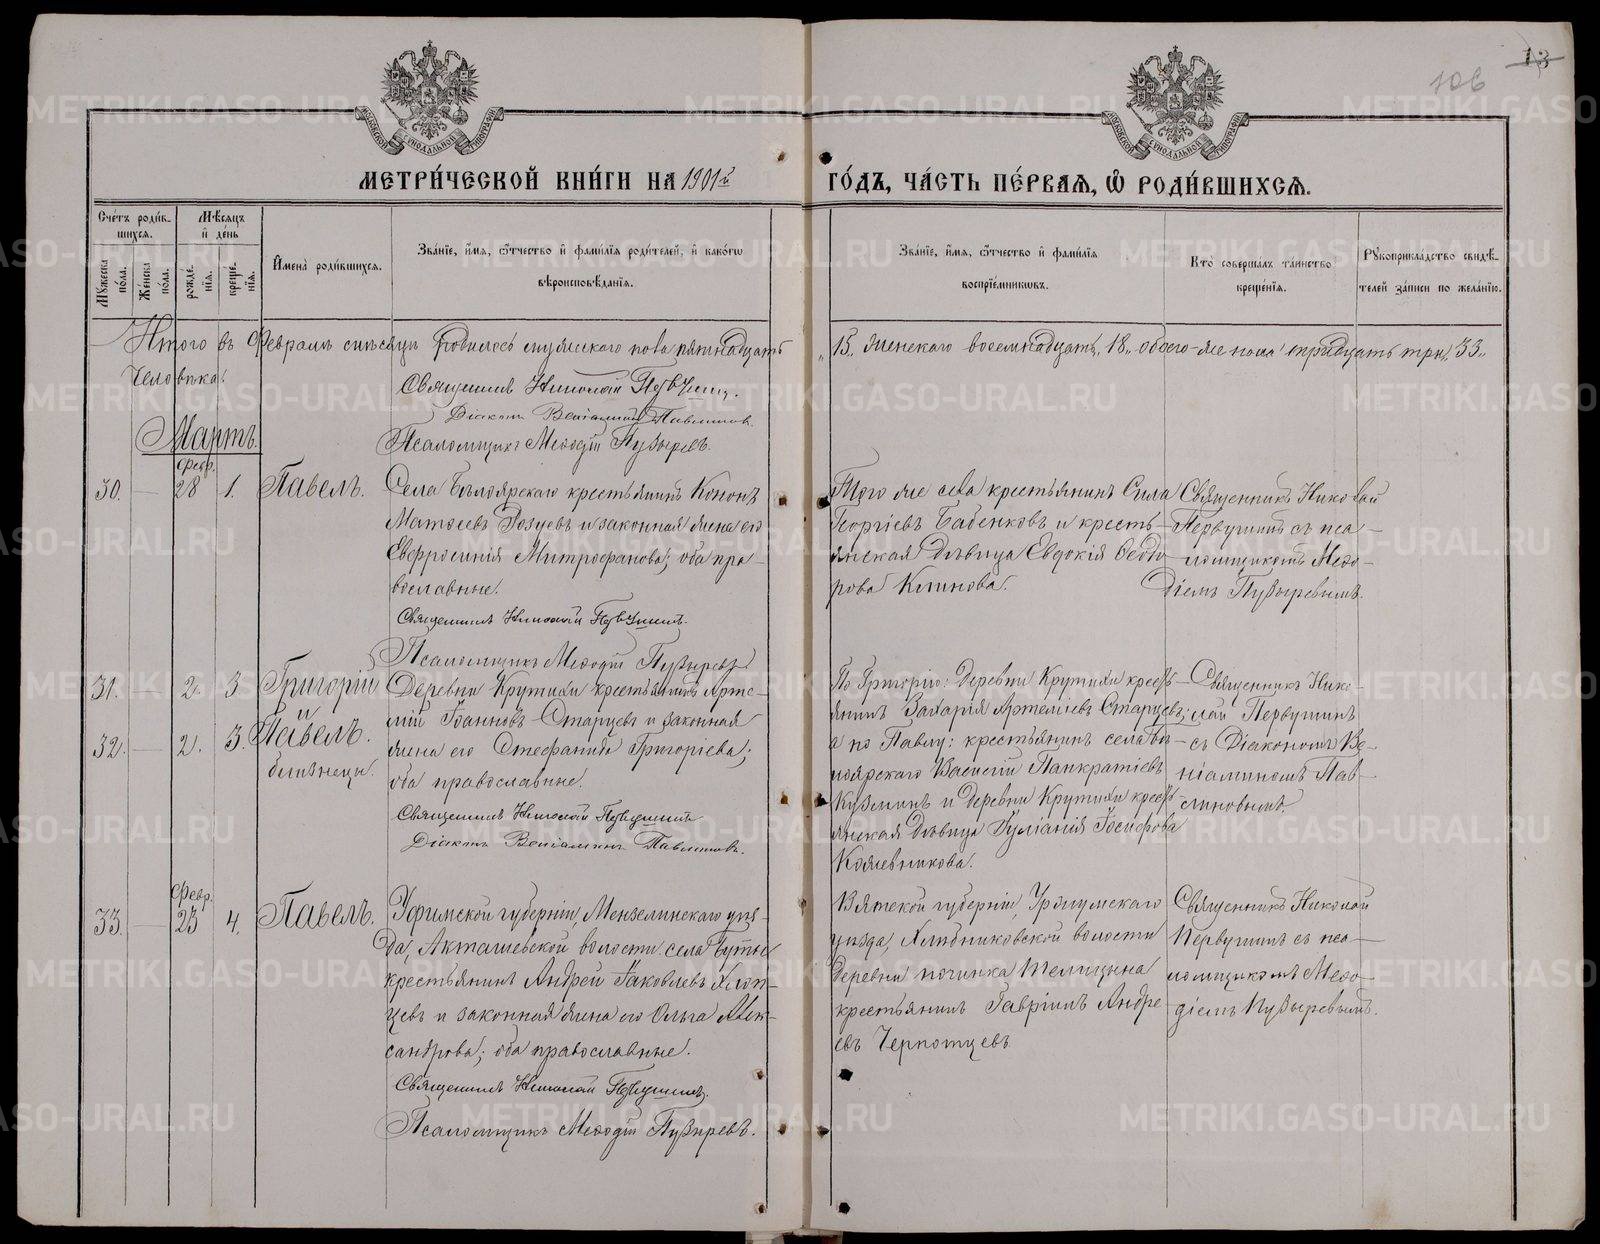 13
106
МОСКОВСКОЙ СѴНОДАЛЬНОЙ ТИПОГРАФІИ
МОСКОВСКОЙ СѴНОДАЛЬНОЙ ТИПОГРАФІИ
МЕТРИ́ЧЕСКОЙ КНИ́ГИ НА 1901й
ГО́ДЪ, ЧА́СТЬ ПЕ́РВАѦ, Ѡ҆ РОДИ́ВШИХСѦ.
Сче́тъ роди́в-
шихся.
Мѣ́сяцъ
и҆ де́нь
Мꙋ́жеска по́ла.
Же́нска по́ла.
рожде́нїя.
креще́нїя.
И҆мена̀ роди́вшихся.
Зва́нїе, и҆́мя, ѻ҆́тчество и҆ фамі́лїя роди́телей, и҆ како́гѡ
вѣроисповѣ́данїя.
Зва́нїе, и҆́мя, ѻ҆́тчество и҆ фамі́лїя
воспрїе́мникѡвъ.
Кто̀ соверша́лъ та́инство
креще́нїя.
Рꙋкоприкла́дство свидѣ́-
телей за́писи по жела́нїю.
Итого въ Февралѣ мѣсяцѣ родилось мужскаго пола пятнадцать
„15„ женскаго восемнадцать „18„ обоего-же пола тридцать три „33„
человѣка.
Священникъ Николай Первушинъ.
Діаконъ Веніаминъ Павлиновъ.
Псаломщикъ Меѳодій Пузыревъ.
Мартъ.
Февр.
30. — 28 1. Павелъ.
Села Бѣлоярскаго крестьянинъ Кононъ
Матѳеевъ и законная жена его
Евфросинія Митрофанова; оба пра-
вославные.
Священникъ Николай Первушинъ.
Псаломщикъ Меѳодій Пузыревъ
Того же села крестьянинъ Сила
Георгіевъ Бабенковъ и кресть-
янская дѣвица Евдокія Ѳедо-
рова Климова.
Священникъ Николай
Первушинъ съ пса-
ломщикомъ Меѳо-
діемъ Пузыревымъ.
31. — 2. 3 Григорій
и
32. — 2. 3. Павелъ.
близнецы.
Деревни Крутихи крестьянинъ Арте-
мій Іоанновъ Старцевъ и законная
жена его Стефанида Григоріева;
оба православные.
Священникъ Николай Первушинъ
Діаконъ Веніаминъ Павлиновъ.
По Григорію: деревни Крутихи кресть-
янинъ Захарія Артеміевъ Старцевъ;
а по Павлу: крестьянинъ села Бѣ-
лоярскаго Василій Панкратіевъ
Кузминъ и деревни Крутихи кресть-
янская дѣвица Іуліанія Іосифова
Кожевникова.
Священникъ Нико-
лай Первушинъ
съ Діакономъ Ве-
ніаминомъ Пав-
линовымъ.
Февр.
33. — 23 4. Павелъ.
Уфимской губерніи, Мензелинскаго уѣз-
да, Акташевской волости села
крестьянинъ Андрей Іаковлевъ Хлоп-
цевъ и законная жена его Ольга Алек-
сандрова; оба православные.
Священникъ Николай Первушинъ.
Псаломщикъ Меѳодій Пузыревъ.
Вятской губерніи, Уржумскаго
уѣзда, Хлѣбниковской волости
деревни починка
крестьянинъ Гавріилъ Андре
евъ
Священникъ Николай
Первушинъ съ пса-
ломщикомъ Меѳо-
діемъ Пузыревымъ.
METRIKI.GASO-URAL.RU